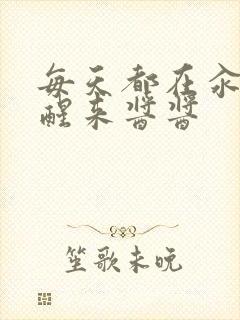 每天都在汆
醒来酱酱
笙歌未晚